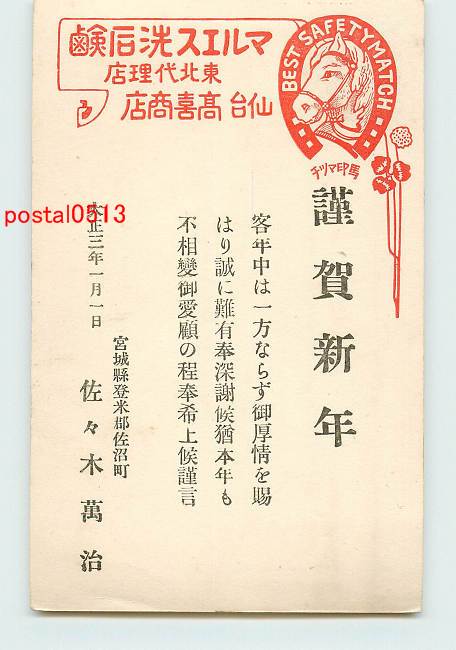 マルエス洗石鹸
東北代理店
仙台 髙喜商店
BEST SAFETY MATCH
馬印マツチ
謹賀新年
客年中は一方ならず御厚情を賜
はり誠に難有奉深謝候猶本年も
不相變御愛顧の程奉希上候謹言
大正三年一月一日
宮城縣登米郡佐沼町
佐々木萬治
postal0513